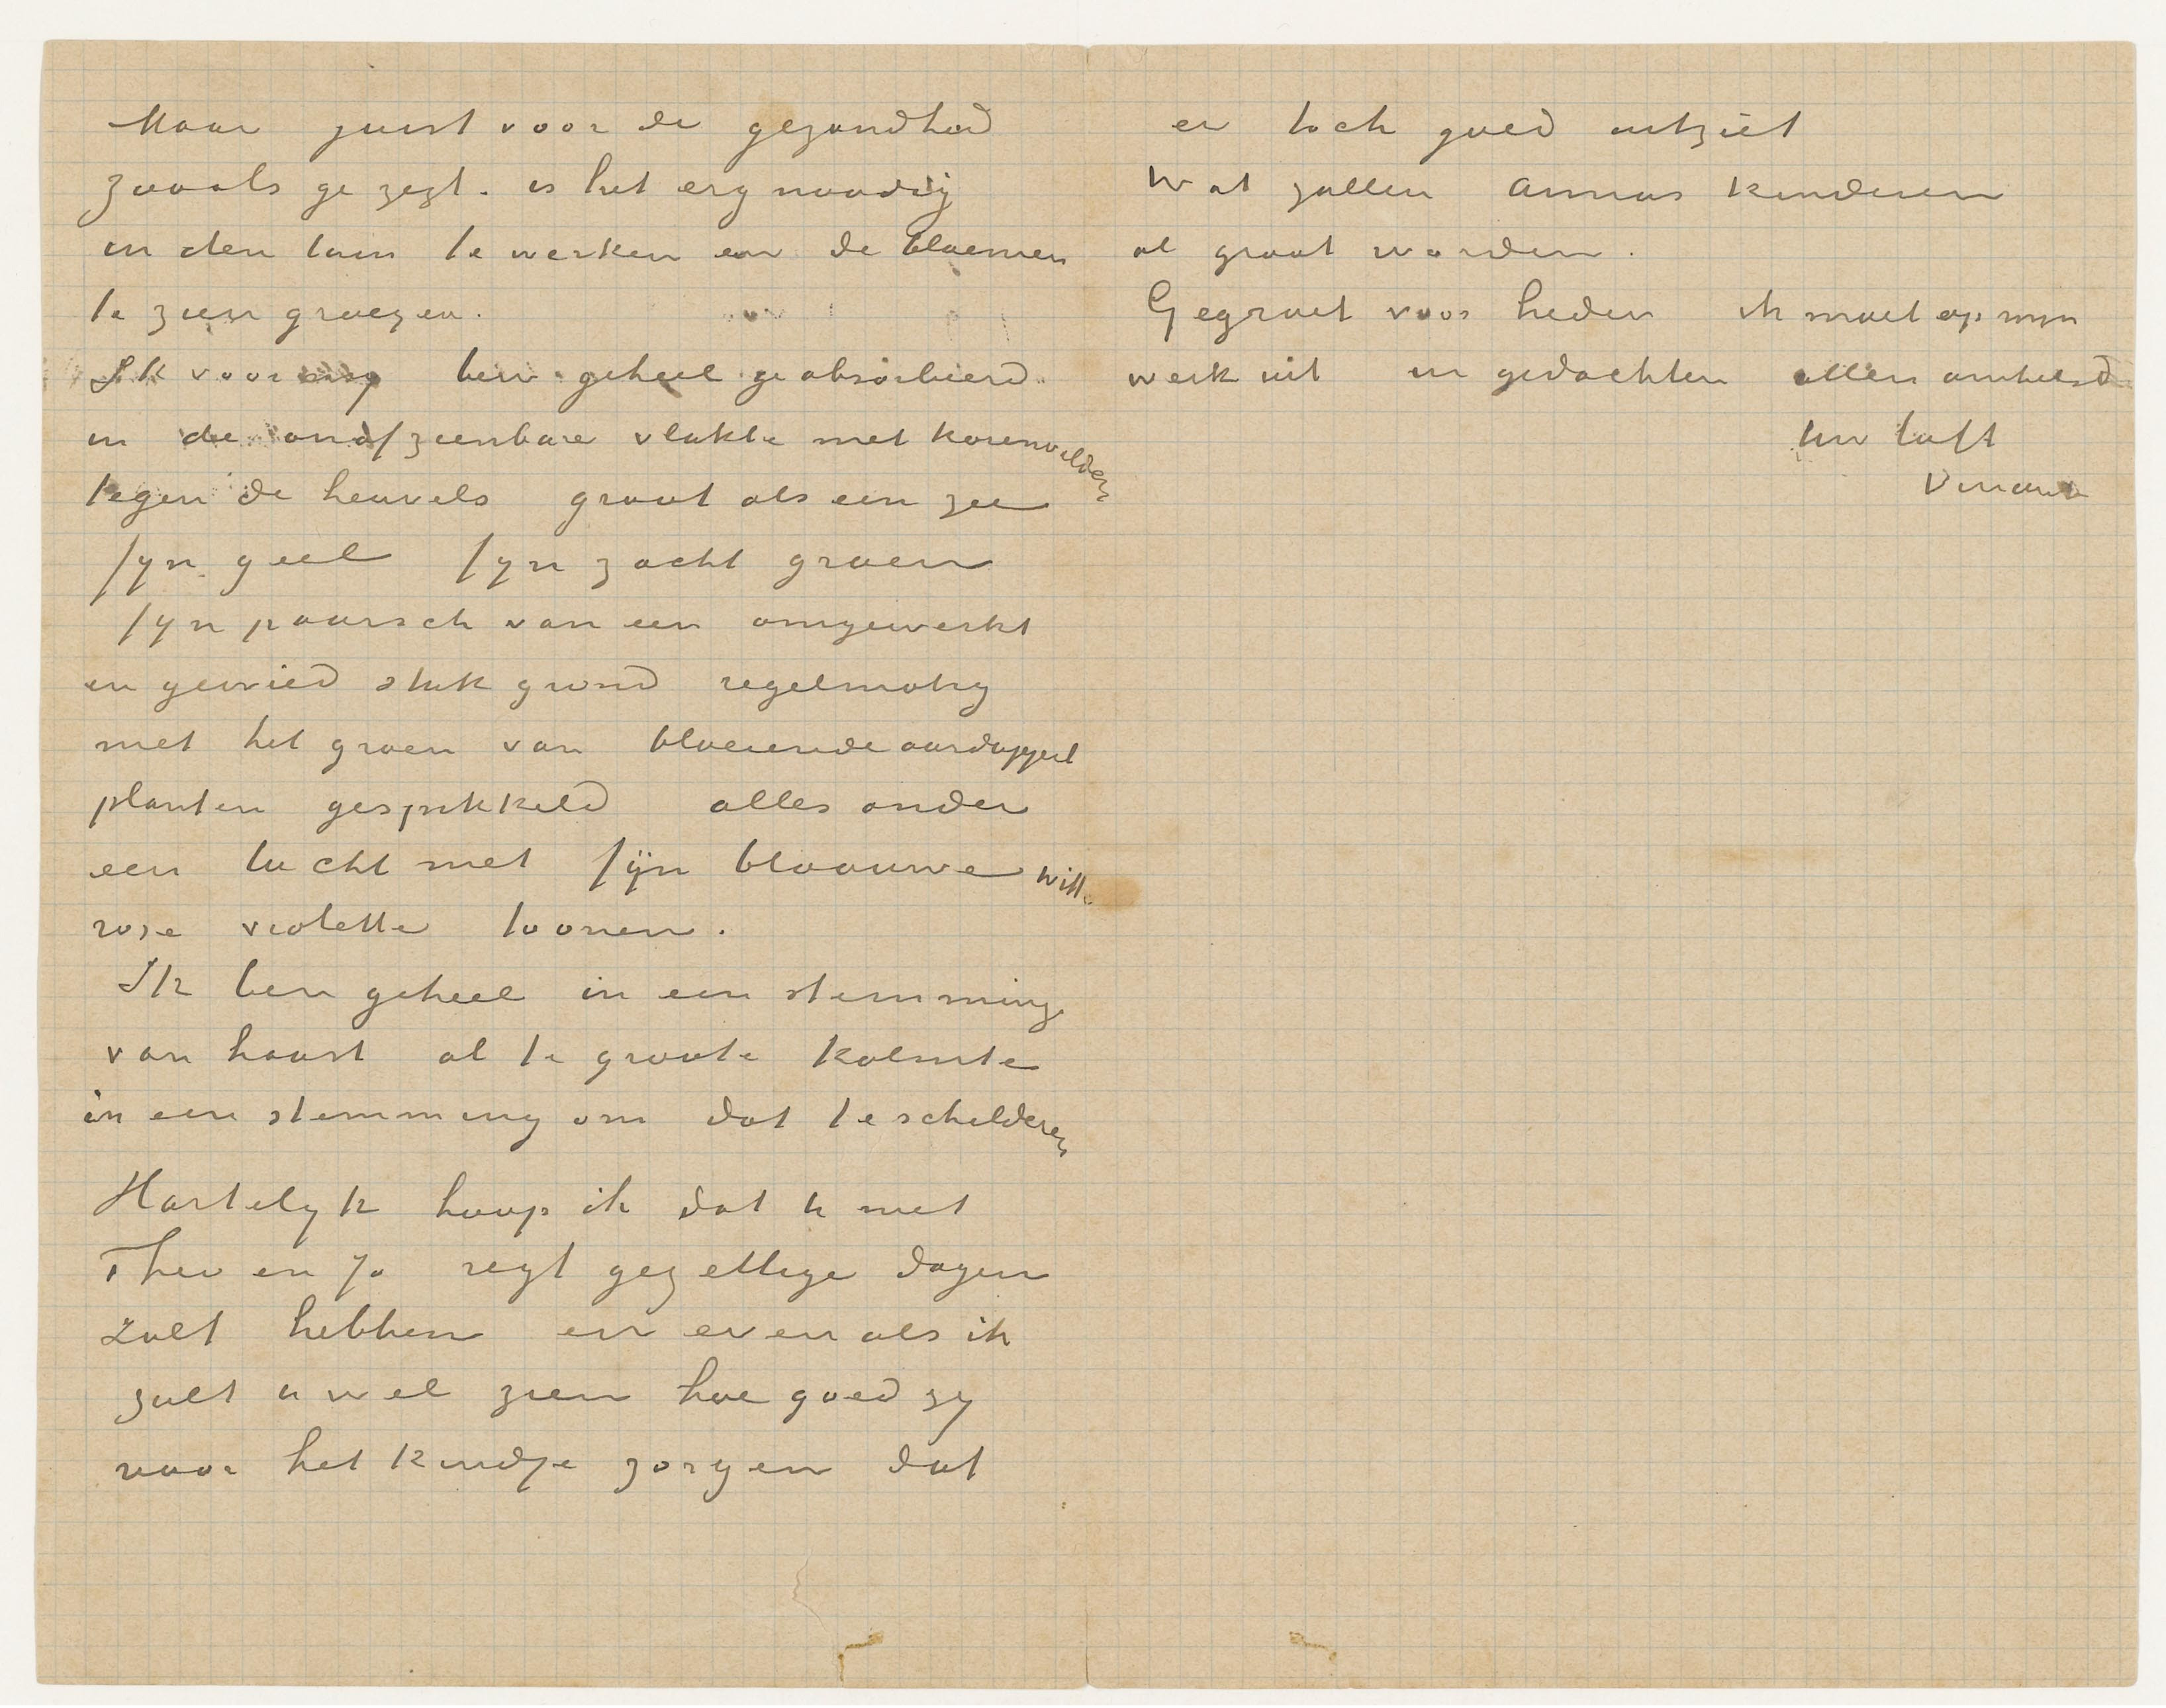 Maar juist voor de gezondheid
zooals gezegt. is het erg noodig
in den tuin te werken en de bloemen
te zien groeyen.
Ik voor my ben geheel geabsorbeerd
in de onafzienbare vlakte met korenvelden
tegen de heuvels groot als een zee
fyn geel fyn zacht groen
fyn paarsch van een omgewerkt
en gewied stuk grond regelmatig
met het groen van bloeiende aardappel
planten gespikkeld alles onder
een lucht met fijn blaauwe witte
rose violette toonen.
Ik ben geheel in een stemming
van haast al te groote kalmte
in een stemming om dat te schilderen
Hartelyk hoop ik dat u met
Theo en Jo regt gezellige dagen
zult hebben en even als ik
zult u wel zien hoe goed zy
voor het kindje zorgen dat
er toch goed uitziet
Wat zullen Annas kinderen
al groot worden.
Gegroet voor heden ik moet op myn
werk uit in gedachten allen omhelsd
Uw liefh
Vincent